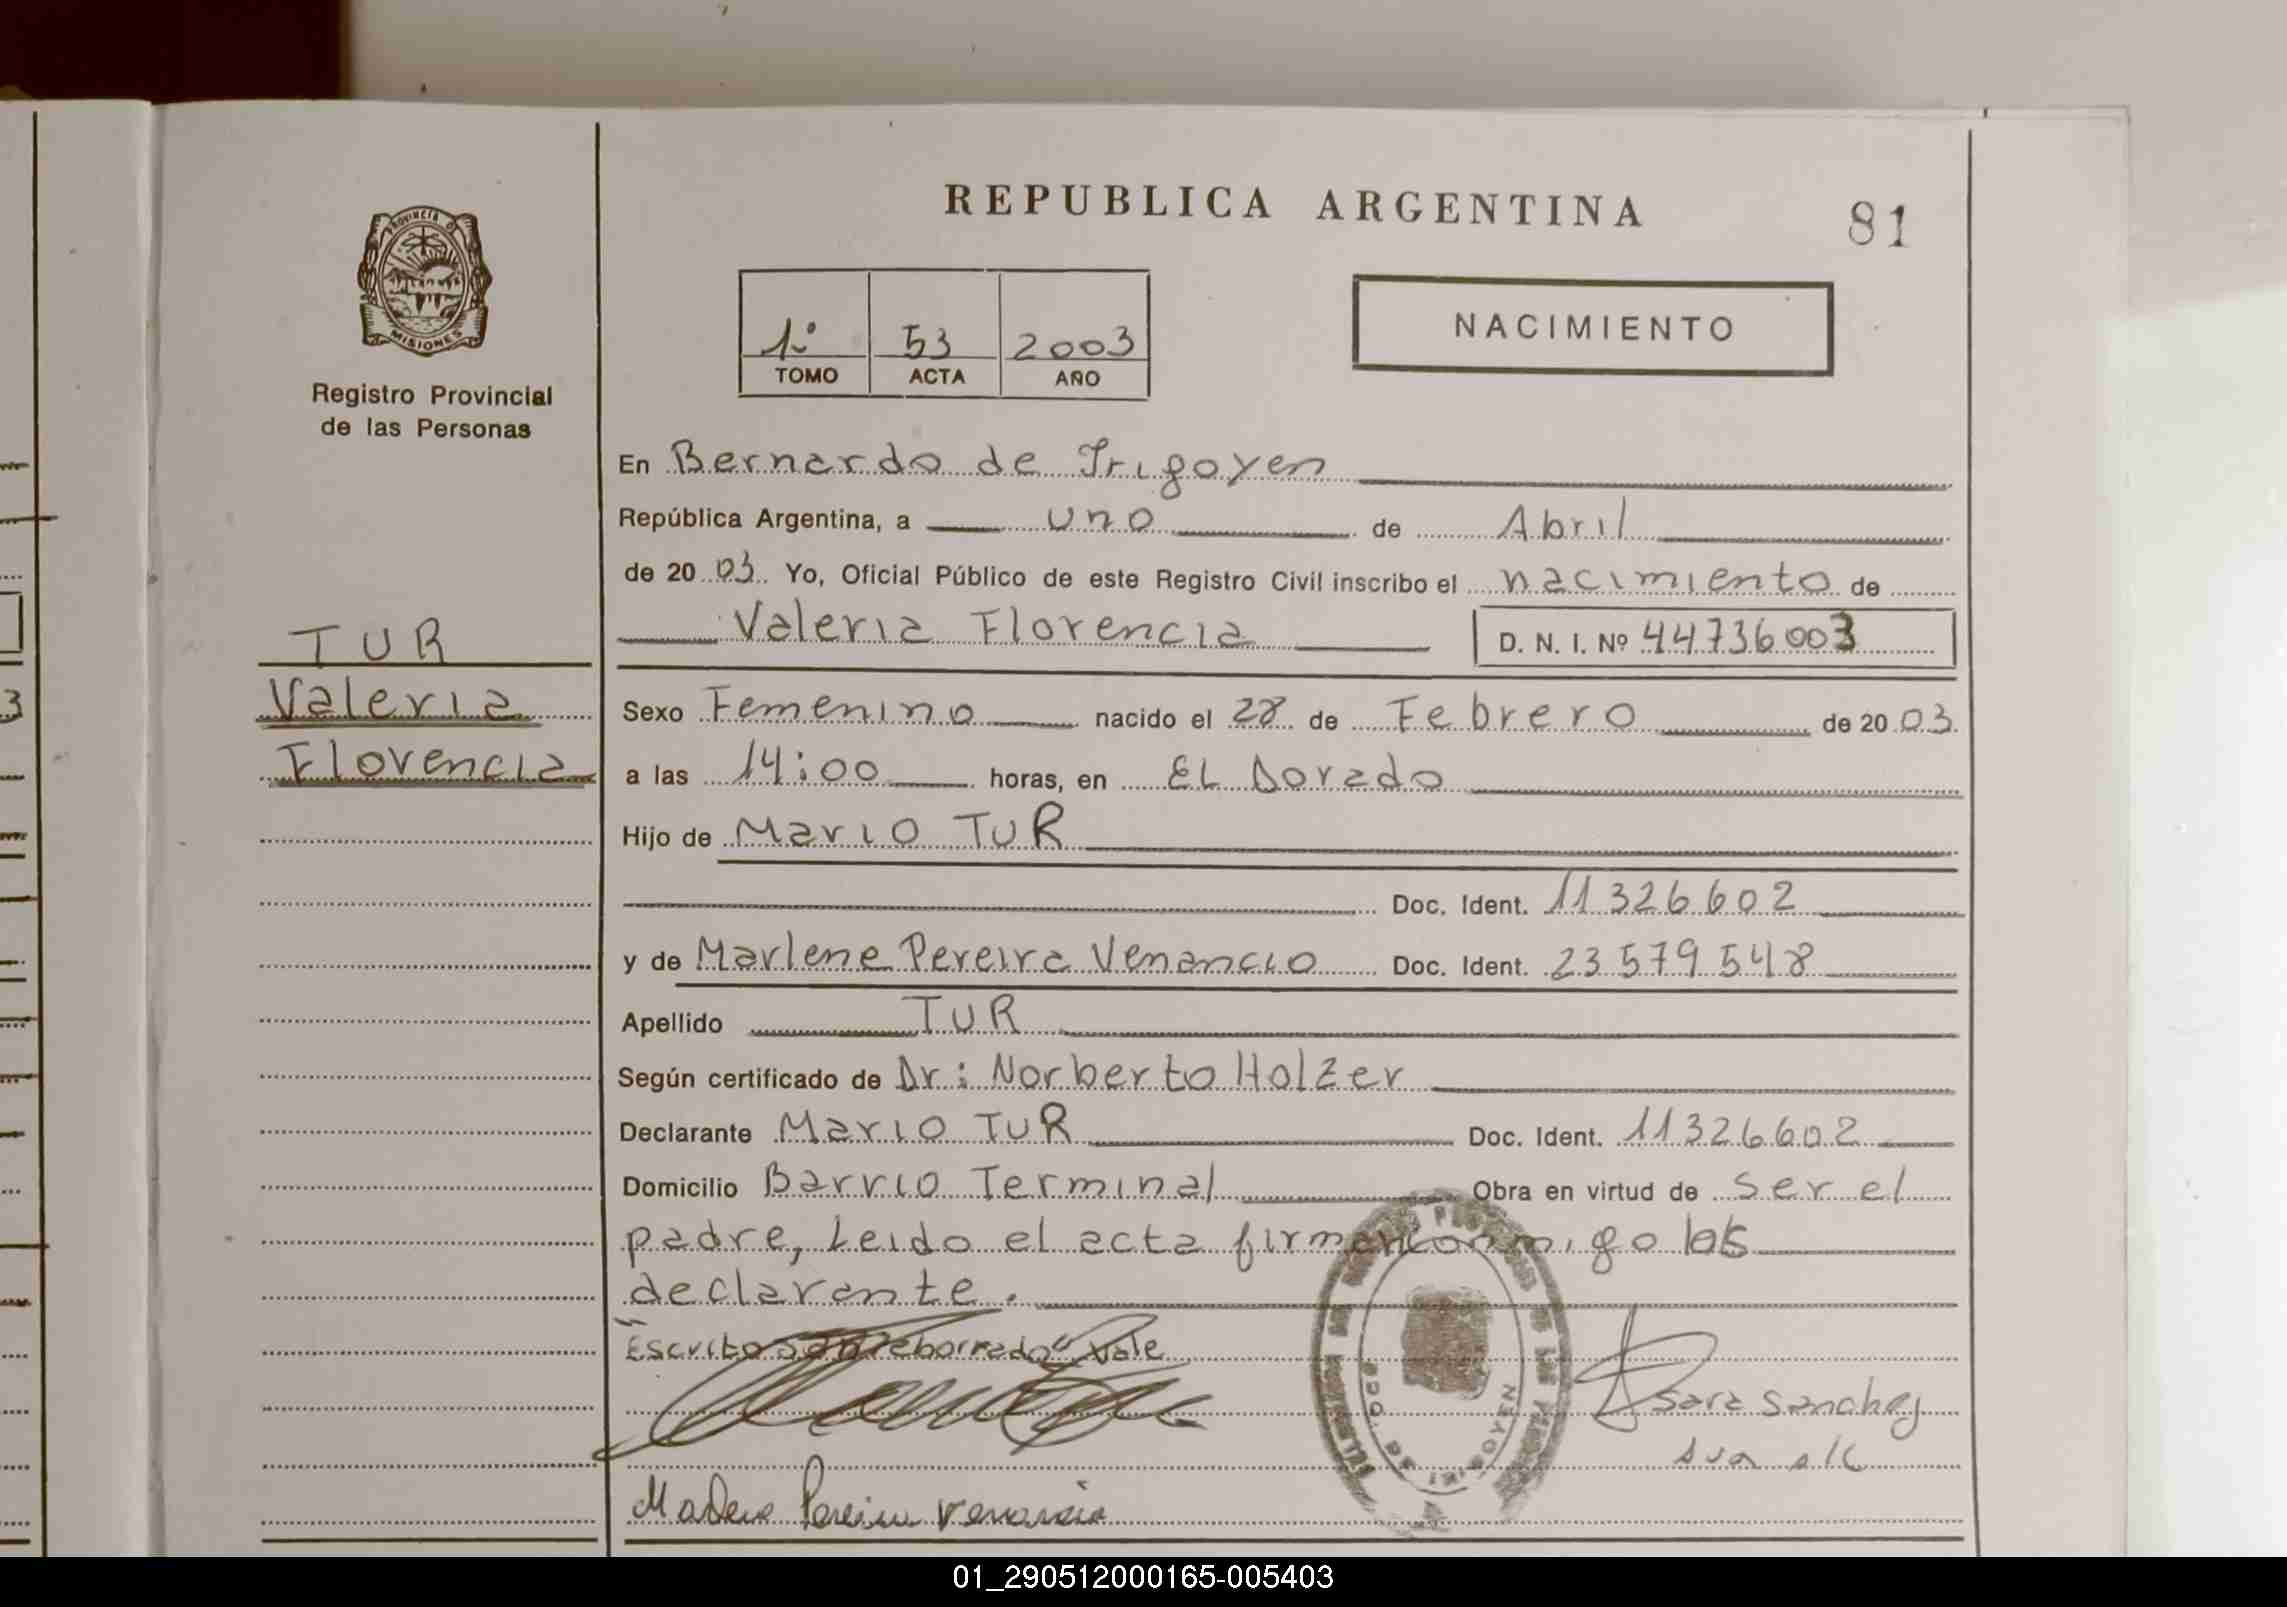 REPUBLICA ARGENTINA
81
PROVINCIA DE
MISIONES
Registro Provincial
de las Personas
1º 53 2003
TOMO ACTA AÑO
NACIMIENTO
En Bernardo de Irigoyen
República Argentina, a uno de Abril
de 2003 Yo, Oficial Público de este Registro Civil inscribo el nacimiento de
Valeria Florencia D. N. I. Nº 44736003
TUR
Valeria
Florencia
3
Sexo Femenino nacido el 28 de Febrero de 2003
a las 14:00 horas, en EL Dorado
Hijo de Mario TUR
Doc. Ident. 11326602
y de Marlene Pereira Venancio Doc. Ident. 23579548
Apellido TUR
Según certificado de Dr: Norberto Holzer
Declarante Mario TUR Doc. Ident. 11326602
Domicilio Barrio Terminal Obra en virtud de ser el
padre, Leido el acta firman conmigo los
declarante.
Escrito sobreborrado" Vale
Sara Sanchez
DE IRIGOYEN
Marlene Pereira Venancio
01_290512000165-005403